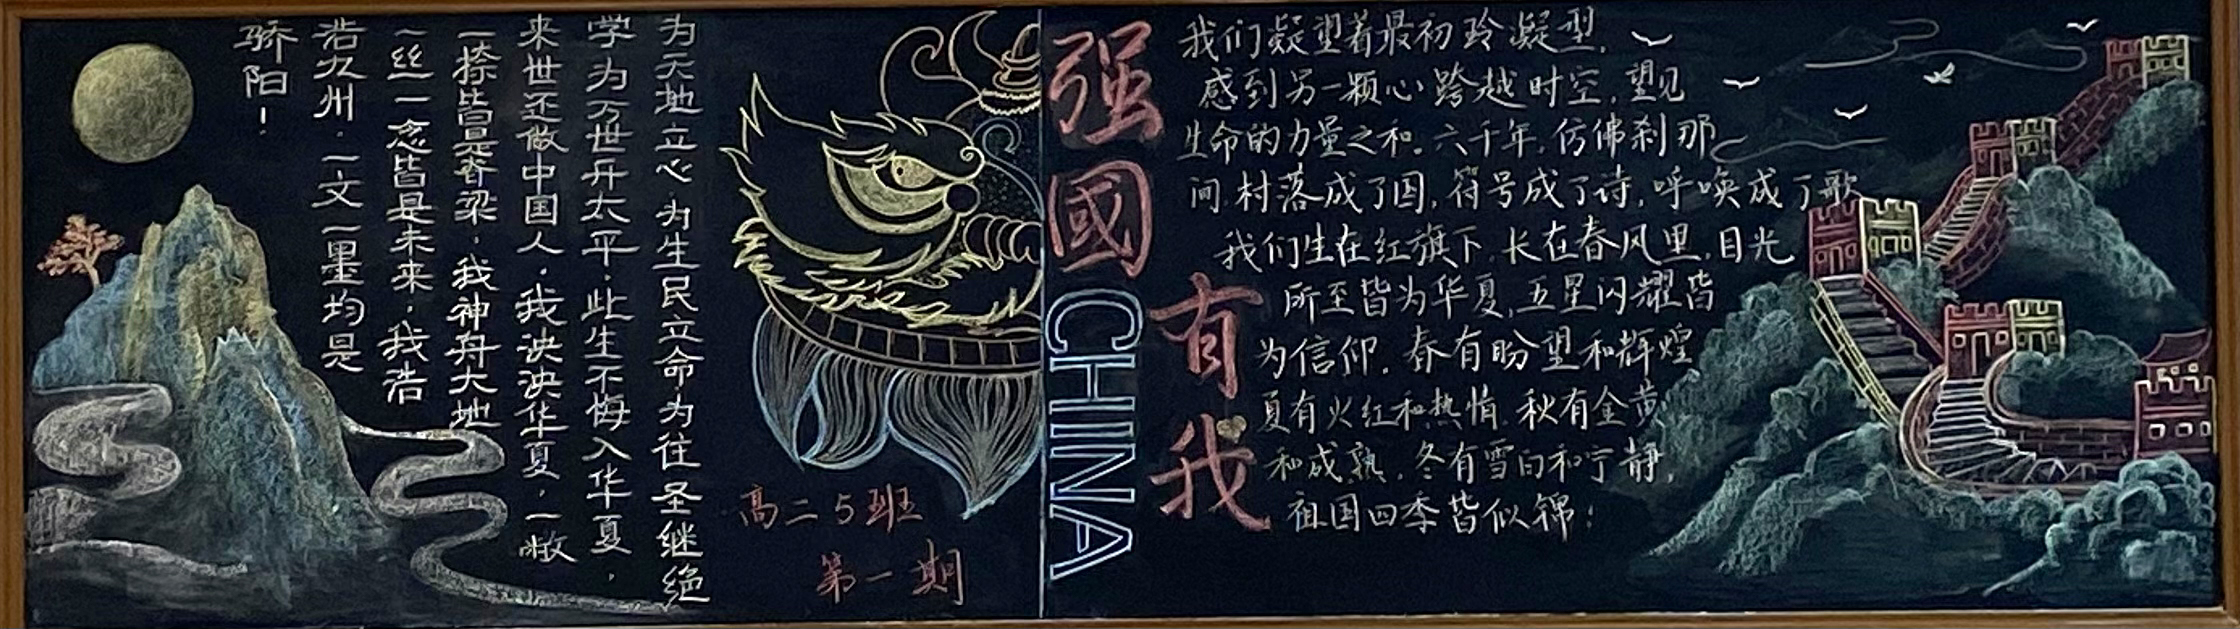 为天地立心·为生民立命为往圣继绝
学为万世开太平·此生不悔入华夏·
来世还做中国人·我泱泱华夏·一撇
一捺皆是脊梁·我神舟大地
一丝一念皆是未来·我浩
浩九州·一文一墨均是
骄阳！
高二5班
第一期
强國有我
CHINA
我们凝望着最初玲凝型,
感到另一颗心跨越时空,望见
生命的力量之和。六千年,仿佛刹那
间,村落成了国,符号成了诗,呼唤成了歌
我们生在红旗下,长在春风里,目光
所至皆为华夏,五星闪耀皆
为信仰.春有盼望和辉煌
夏有火红和热情.秋有金黄
和成熟.冬有雪白和宁静,
祖国四季皆似锦!